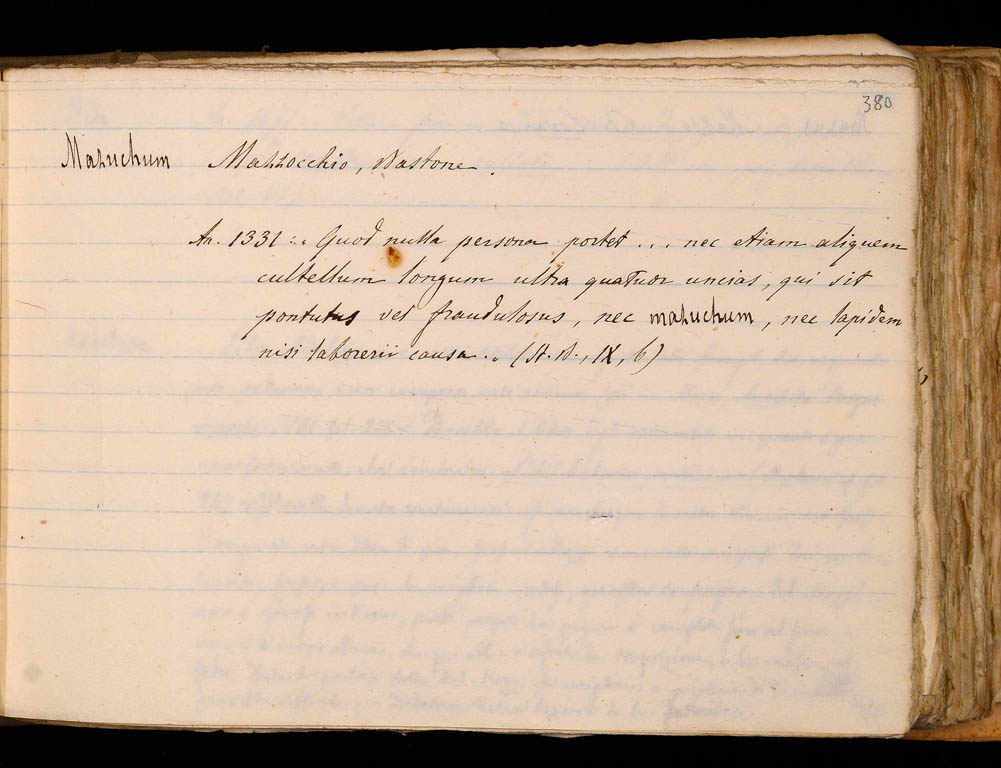 380
Mazuchum Mazzocchio, Bastone.
An. 1331 : „ Quod nulla persona portet ... nec etiam aliquem
cultellum longum ultra quatuor uncias, qui sit
pontutus vel fraudulosus, nec mazuchum, nec lapidem
nisi laborerii causa. „ (St. B., IX, 6)